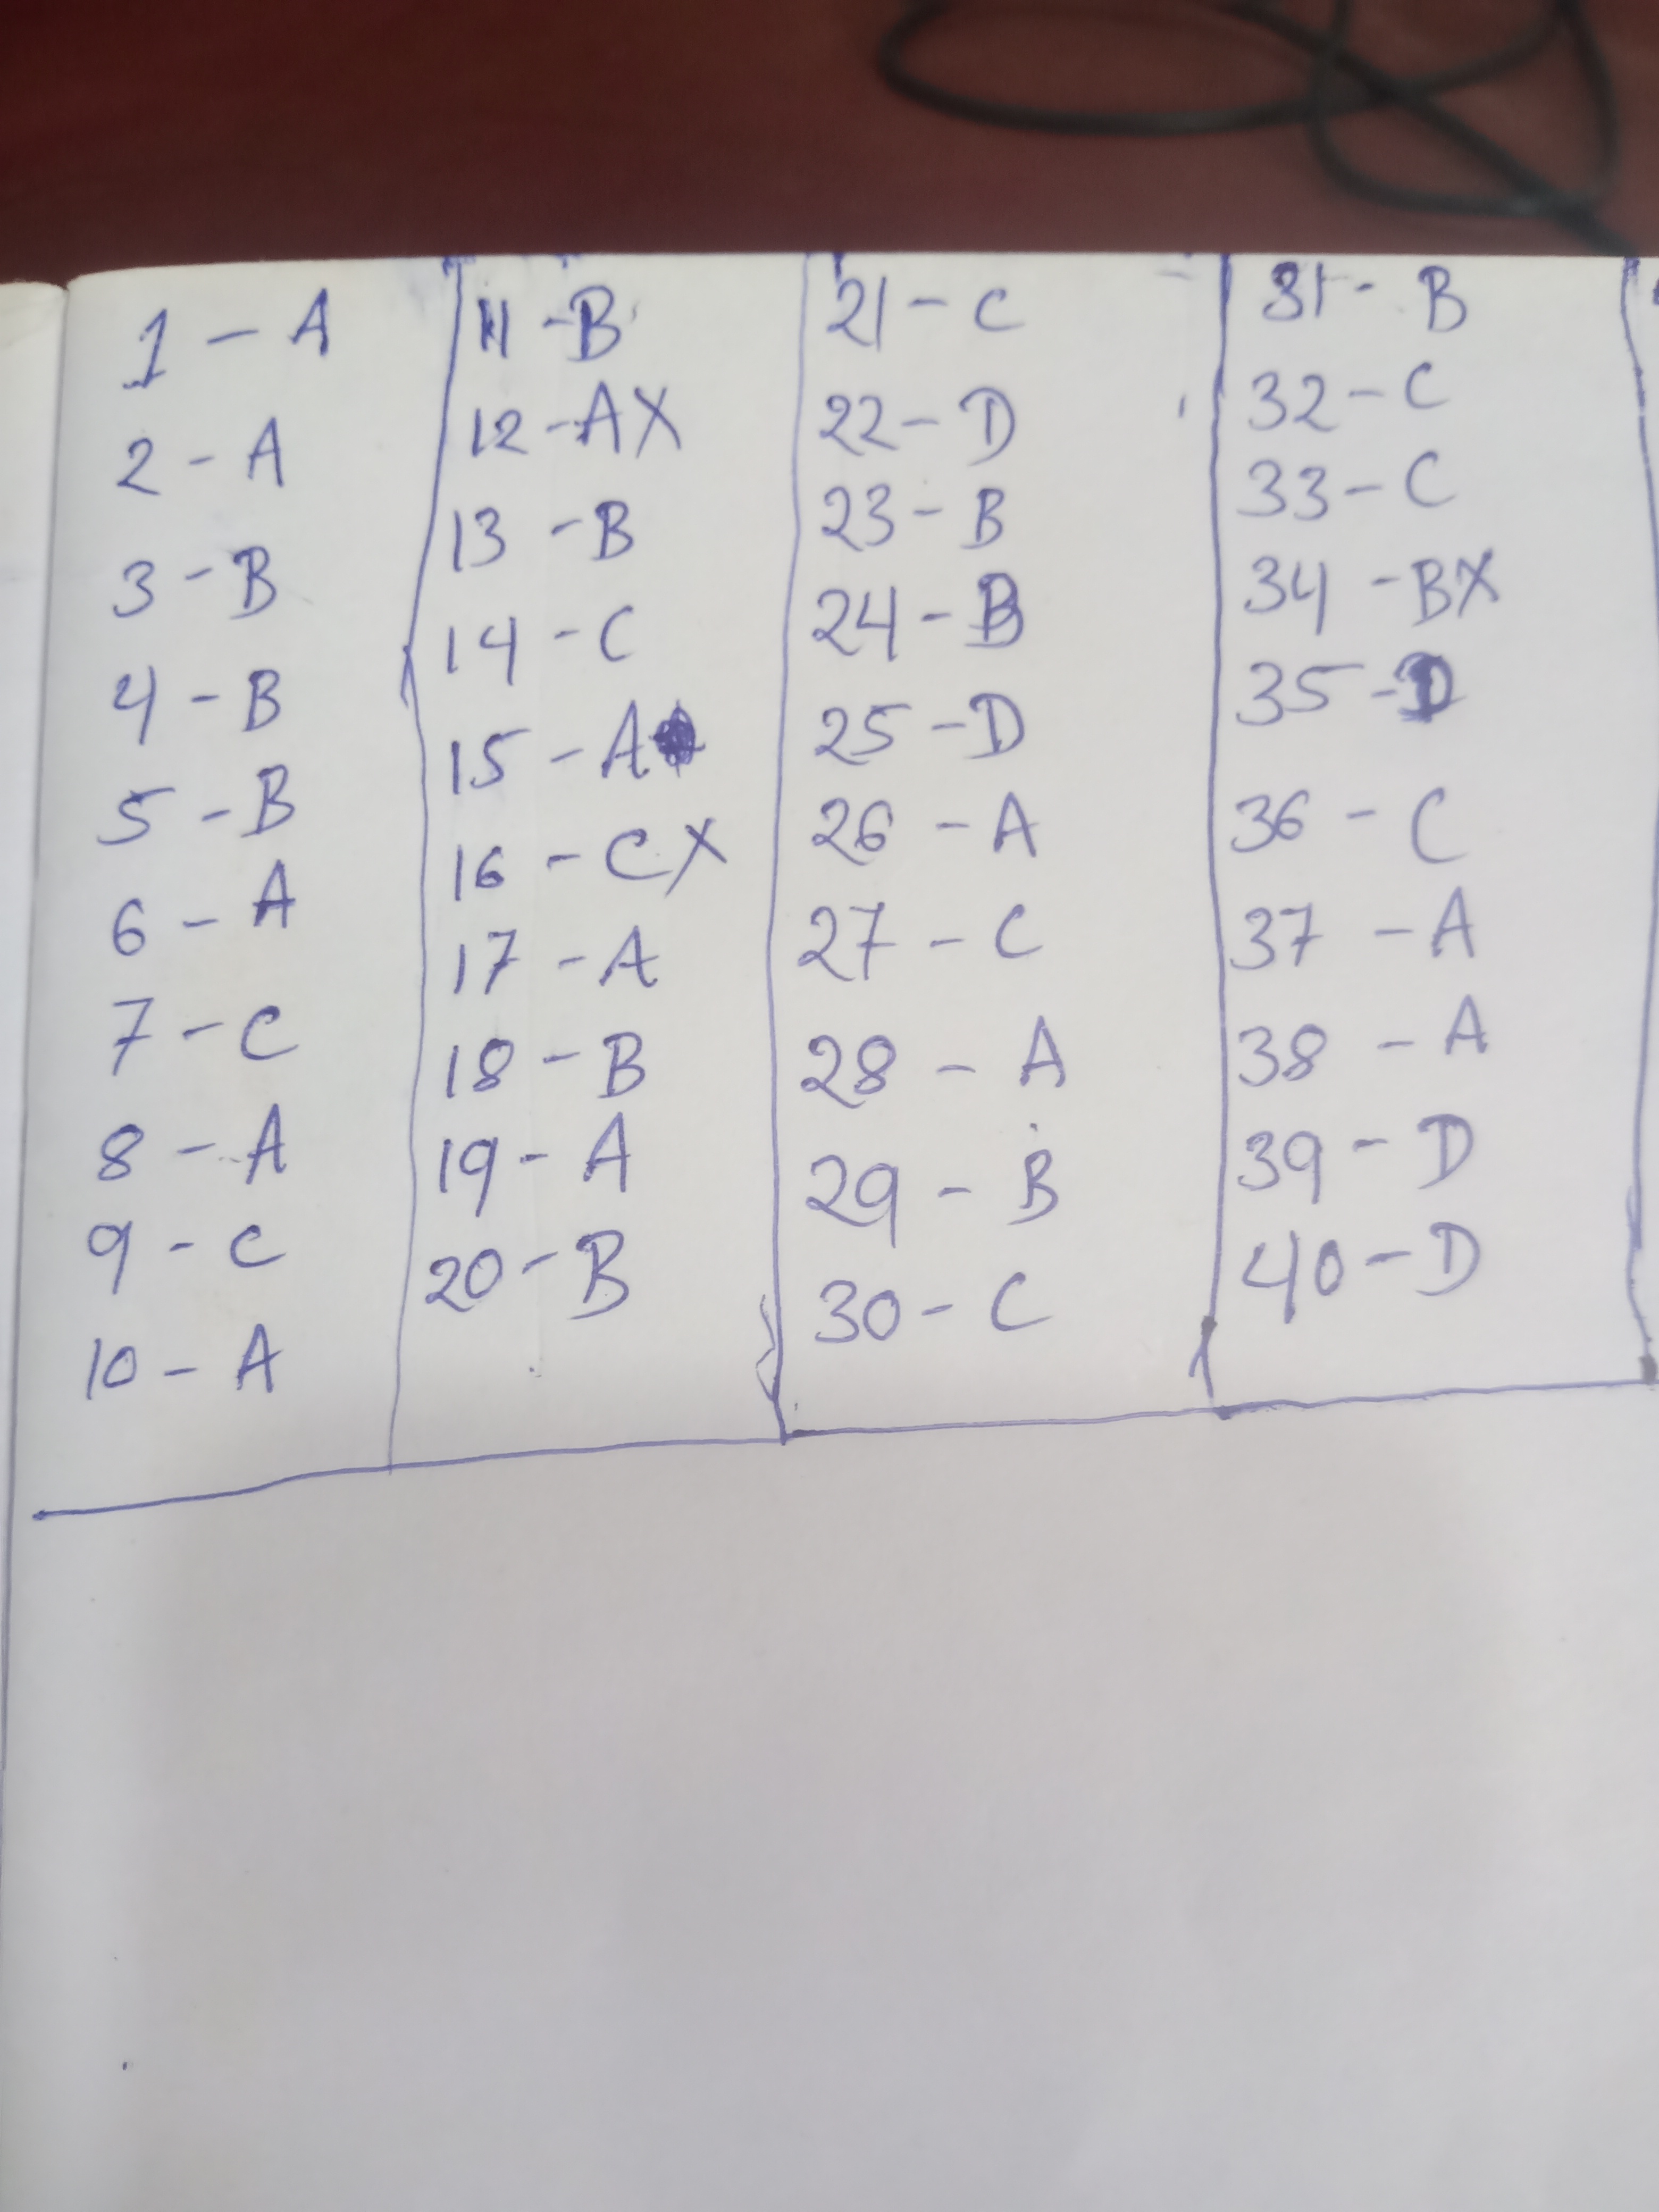 1 - A
2 - A
3 - B
4 - B
5 - B
6 - A
7 - C
8 - A
9 - C
10 - A
11 - B
12 - A X
13 - B
14 - C
15 - A
16 - C X
17 - A
18 - B
19 - A
20 - B
21 - C
22 - D
23 - B
24 - B
25 - D
26 - A
27 - C
28 - A
29 - B
30 - C
31 - B
32 - C
33 - C
34 - B X
35 - D
36 - C
37 - A
38 - A
39 - D
40 - D